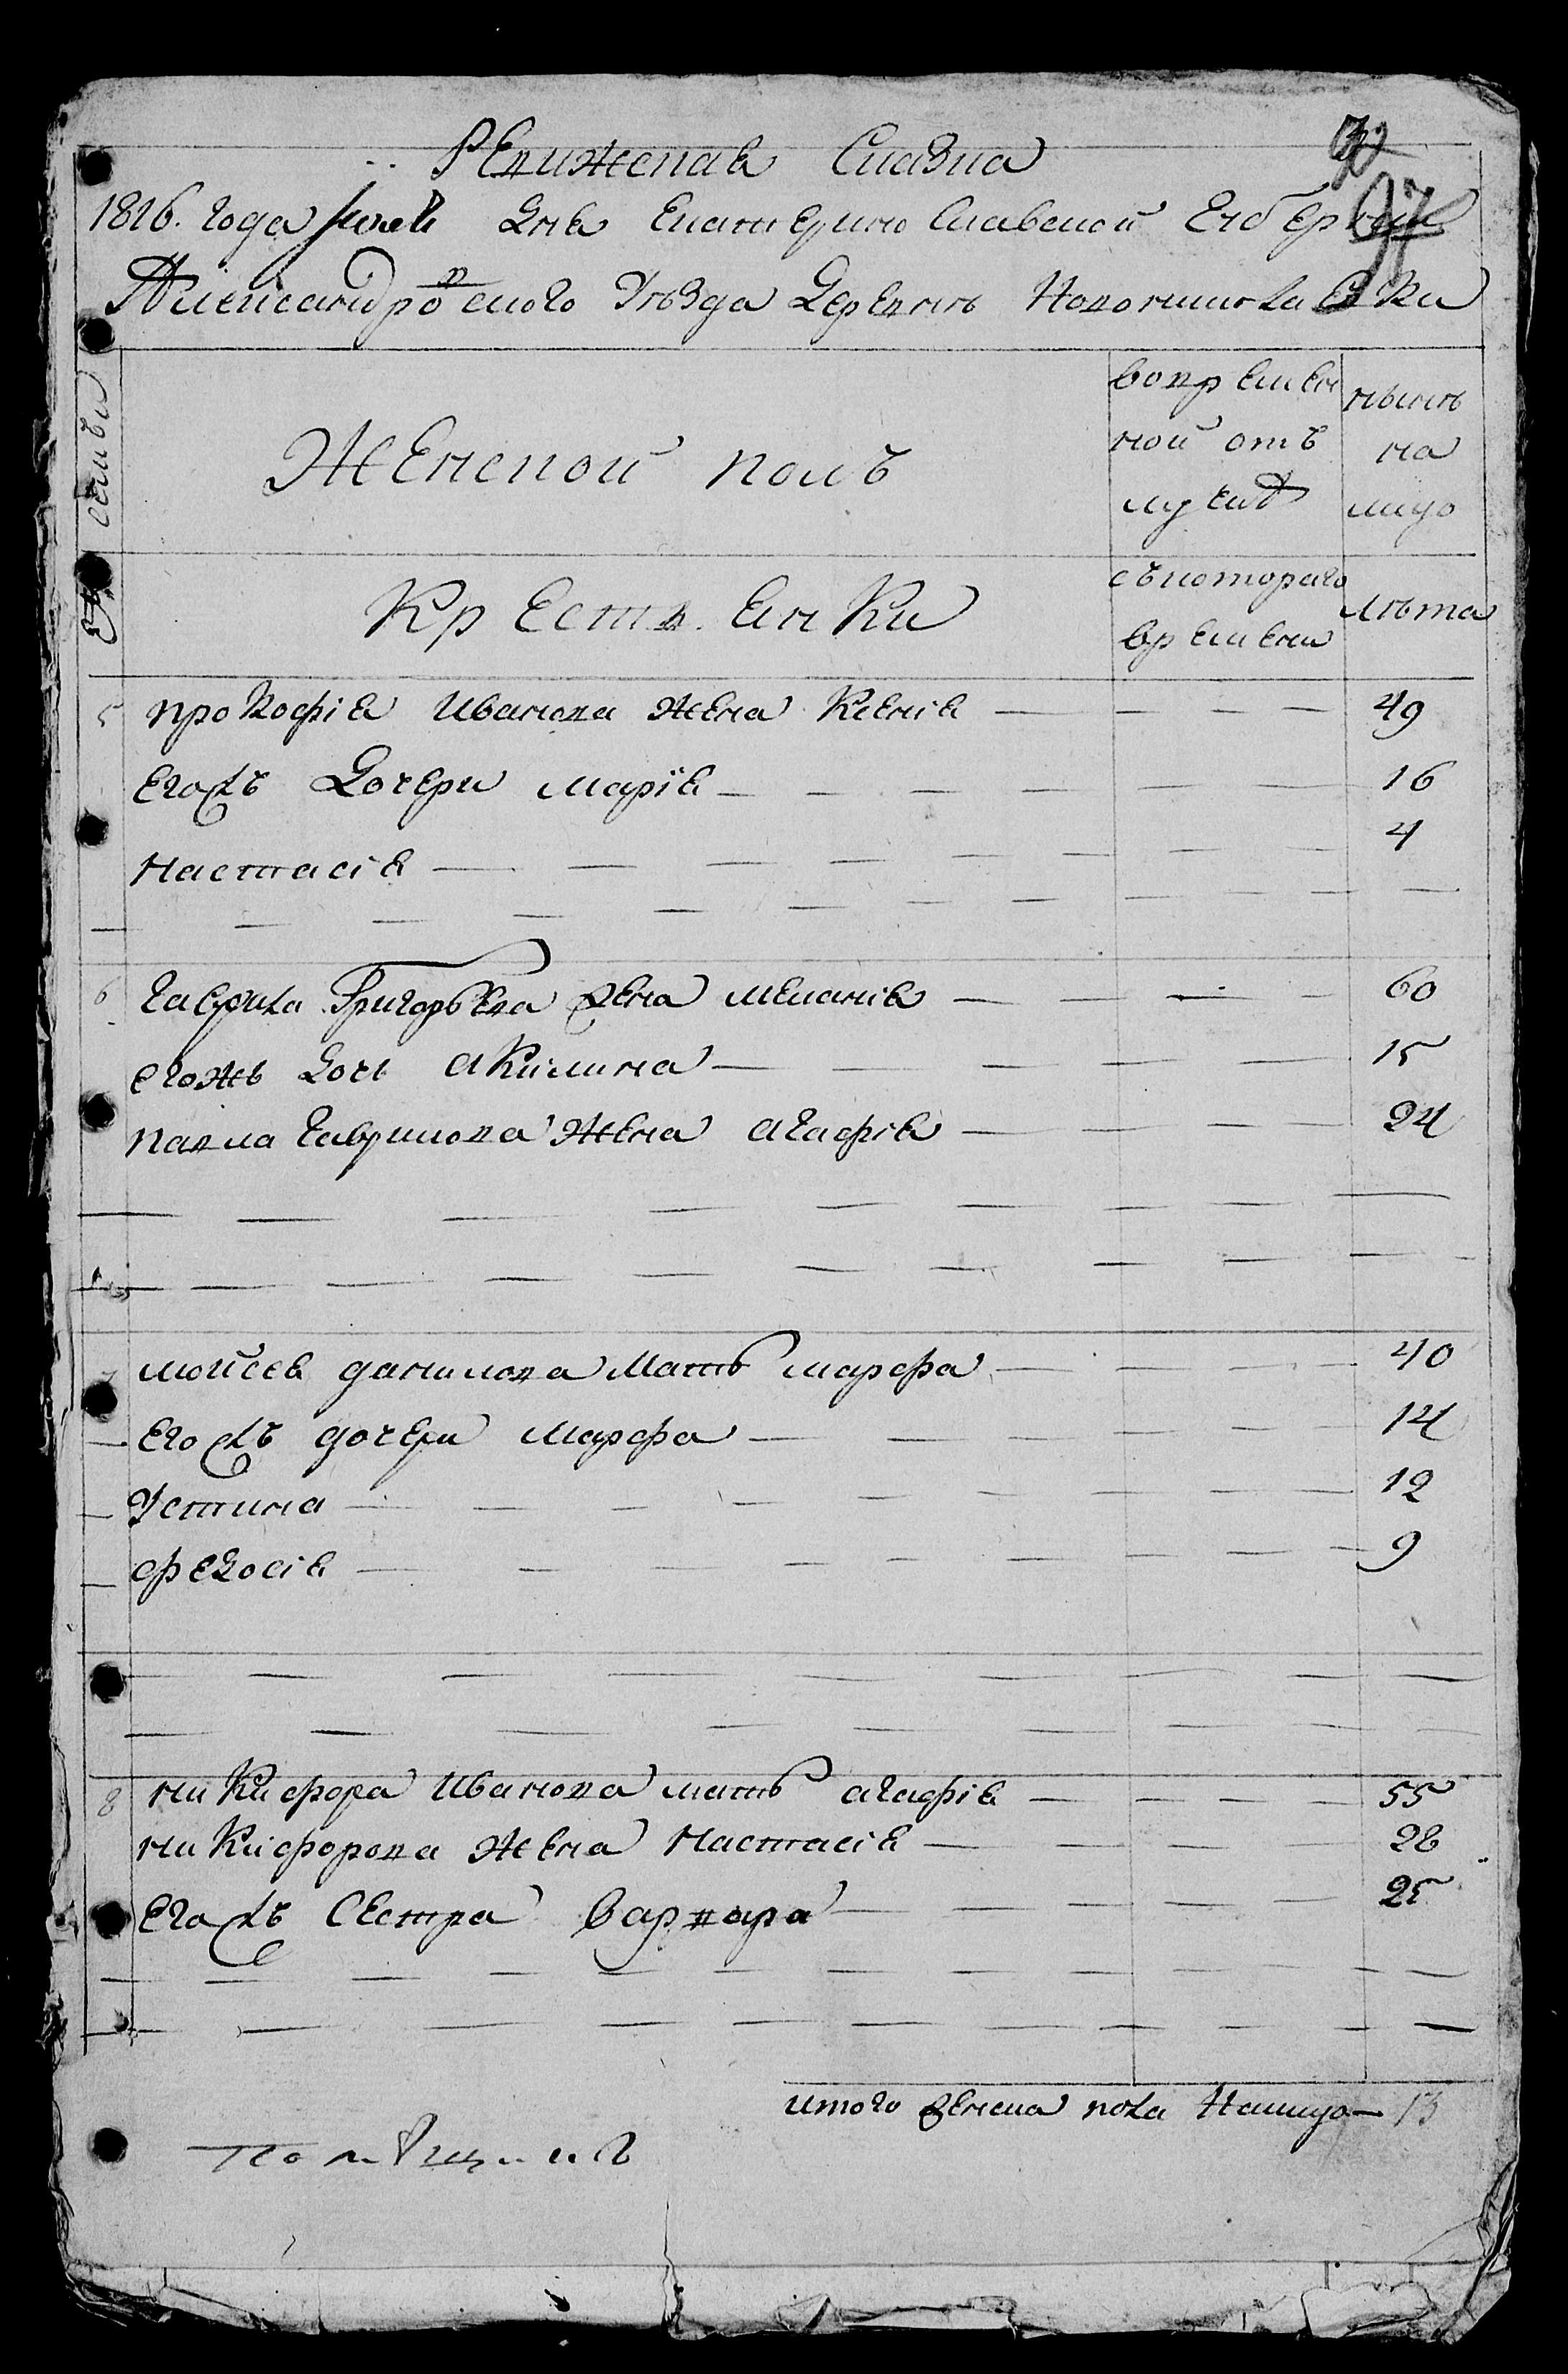 Ревижская Сказка
1816. года дня Екатеринославской Губернии
Александровского Уѣзда Деревни
семьи
Женской полъ
вовремен
ной отъ
лучкѣ
нынѣ
на
лицо
Крестьянки
съкотораго
времени
лѣта
5 прокофія Иванова жена Ксенія — 49
Егожъ Дочери марія — 16
Настасія — 4
6 гаврила Григорьева жена меланія — 60
Егожъ Дочь акилина — 15
павла гаврилова жена агафія — 24
мойсея данилова Мать марфа — 40
Егожъ дочери Марфа — 14
Устина — 12
федосія — 9
8 никифора Иванова мать агафія — 55
никифорова жена Настасія — 28
Егожъ Сестра варвара — 25
итого женска пола Налицо — 13